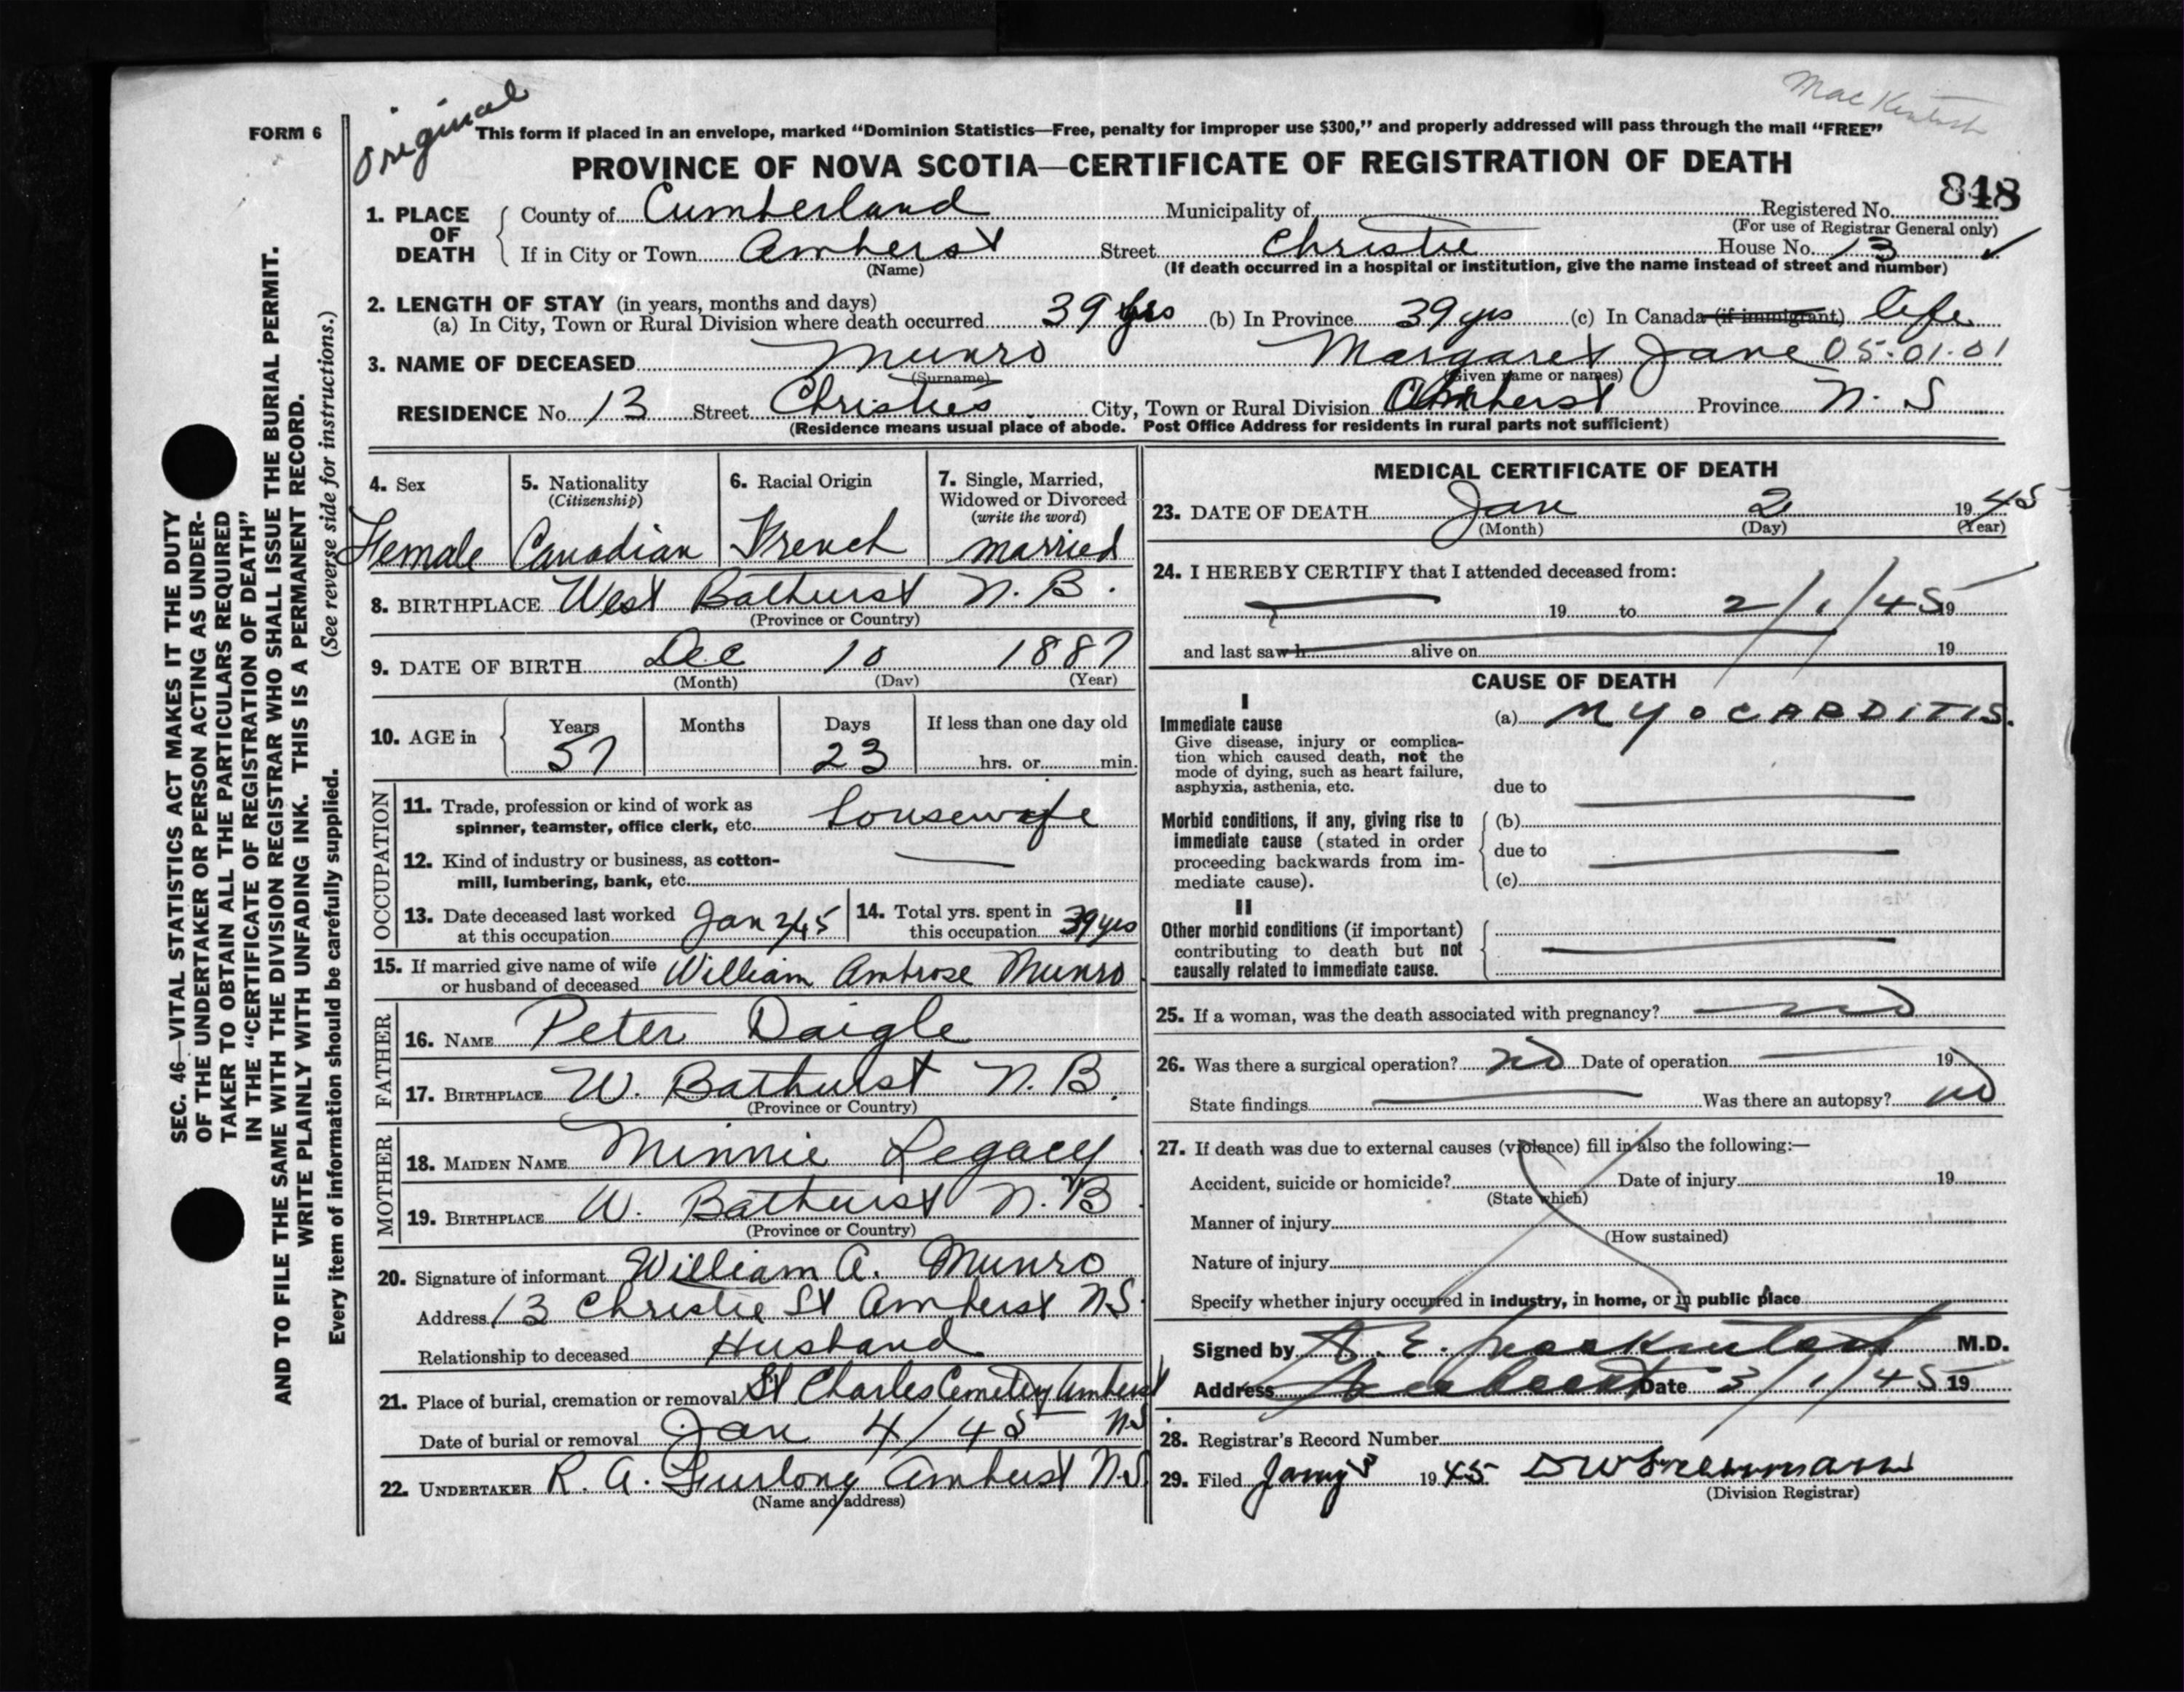 Original
MacKintosh
FORM 6
This form if placed in an envelope, marked "Dominion Statistics—Free, penalty for improper use $300," and properly addressed will pass through the mail "FREE"
PROVINCE OF NOVA SCOTIA—CERTIFICATE OF REGISTRATION OF DEATH
848
1. PLACE OF DEATH
County of Cumberland Municipality of Registered No.
(For use of Registrar General only)
If in City or Town Amherst Street Christie House No. 13
(Name) (If death occurred in a hospital or institution, give the name instead of street and number)
2. LENGTH OF STAY (in years, months and days)
(a) In City, Town or Rural Division where death occurred 39 yrs (b) In Province 39 yrs (c) In Canada (if immigrant) life
3. NAME OF DECEASED Munro Margaret Jane 05.01.01
(Surname) (Given name or names)
RESIDENCE No. 13 Street Christies City, Town or Rural Division Amherst Province N. S
(Residence means usual place of abode. Post Office Address for residents in rural parts not sufficient)
4. Sex
Female
5. Nationality
(Citizenship)
Canadian
6. Racial Origin
French
7. Single, Married,
Widowed or Divorced
(write the word)
married
8. BIRTHPLACE West Bathurst N. B.
(Province or Country)
9. DATE OF BIRTH Dec 10 1887
(Month) (Day) (Year)
10. AGE in
Years Months Days If less than one day old
57 23 hrs. or min.
OCCUPATION
11. Trade, profession or kind of work as
spinner, teamster, office clerk, etc. housewife
12. Kind of industry or business, as cotton-
mill, lumbering, bank, etc.
13. Date deceased last worked
at this occupation Jan 2/45
14. Total yrs. spent in
this occupation 39 yrs
15. If married give name of wife
or husband of deceased William Ambrose Munro
FATHER
16. NAME Peter Daigle
17. BIRTHPLACE W. Bathurst N. B.
(Province or Country)
MOTHER
18. MAIDEN NAME Minnie Legacy
19. BIRTHPLACE W. Bathurst N. B
(Province or Country)
20. Signature of informant William A. Munro
Address 13 Christie St Amherst NS.
Relationship to deceased Husband
21. Place of burial, cremation or removal St Charles Cemetery Amherst
N.S
Date of burial or removal Jan 4/45
22. UNDERTAKER R. A. Furlong Amherst N.S
(Name and address)
MEDICAL CERTIFICATE OF DEATH
23. DATE OF DEATH Jan 2 1945
(Month) (Day) (Year)
24. I HEREBY CERTIFY that I attended deceased from:
19 to 2/1/45 19
and last saw h alive on 19
CAUSE OF DEATH
I
Immediate cause
Give disease, injury or complica-
tion which caused death, not the
mode of dying, such as heart failure,
asphyxia, asthenia, etc.
(a) MYOCARDITIS.
due to
Morbid conditions, if any, giving rise to
immediate cause (stated in order
proceeding backwards from im-
mediate cause).
(b)
due to
(c)
II
Other morbid conditions (if important)
contributing to death but not
causally related to immediate cause.
25. If a woman, was the death associated with pregnancy? no
26. Was there a surgical operation? no Date of operation 19
State findings Was there an autopsy? no
27. If death was due to external causes (violence) fill in also the following:—
Accident, suicide or homicide? Date of injury 19
(State which)
Manner of injury
(How sustained)
Nature of injury
Specify whether injury occurred in industry, in home, or in public place
Signed by E. MacKintosh M.D.
Address Amherst Date 3/1/45 19
28. Registrar's Record Number
29. Filed 1945
(Division Registrar)
SEC. 46—VITAL STATISTICS ACT MAKES IT THE DUTY
OF THE UNDERTAKER OR PERSON ACTING AS UNDER-
TAKER TO OBTAIN ALL THE PARTICULARS REQUIRED
IN THE "CERTIFICATE OF REGISTRATION OF DEATH"
AND TO FILE THE SAME WITH THE DIVISION REGISTRAR WHO SHALL ISSUE THE BURIAL PERMIT.
WRITE PLAINLY WITH UNFADING INK. THIS IS A PERMANENT RECORD.
Every item of information should be carefully supplied. (See reverse side for instructions.)